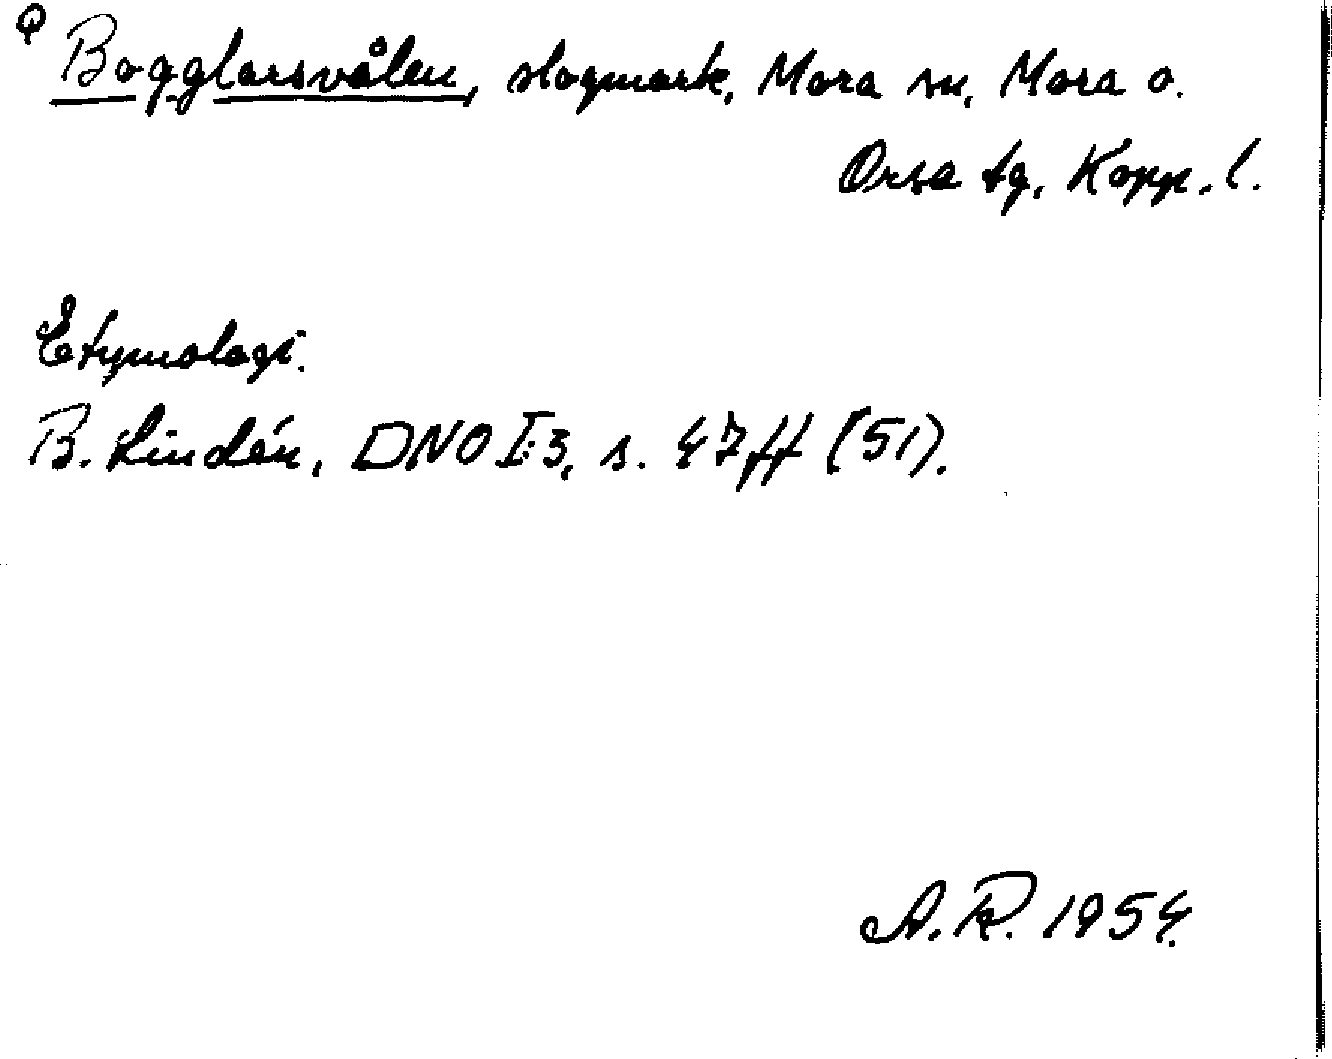 Bogglarsvålen, slogmark, Mora sn, Mora o.
Orsa tg, Kopp. l.
Etymologi.
B. Lindén, DNO I:3, s. 47ff (51).
A.R. 1954.